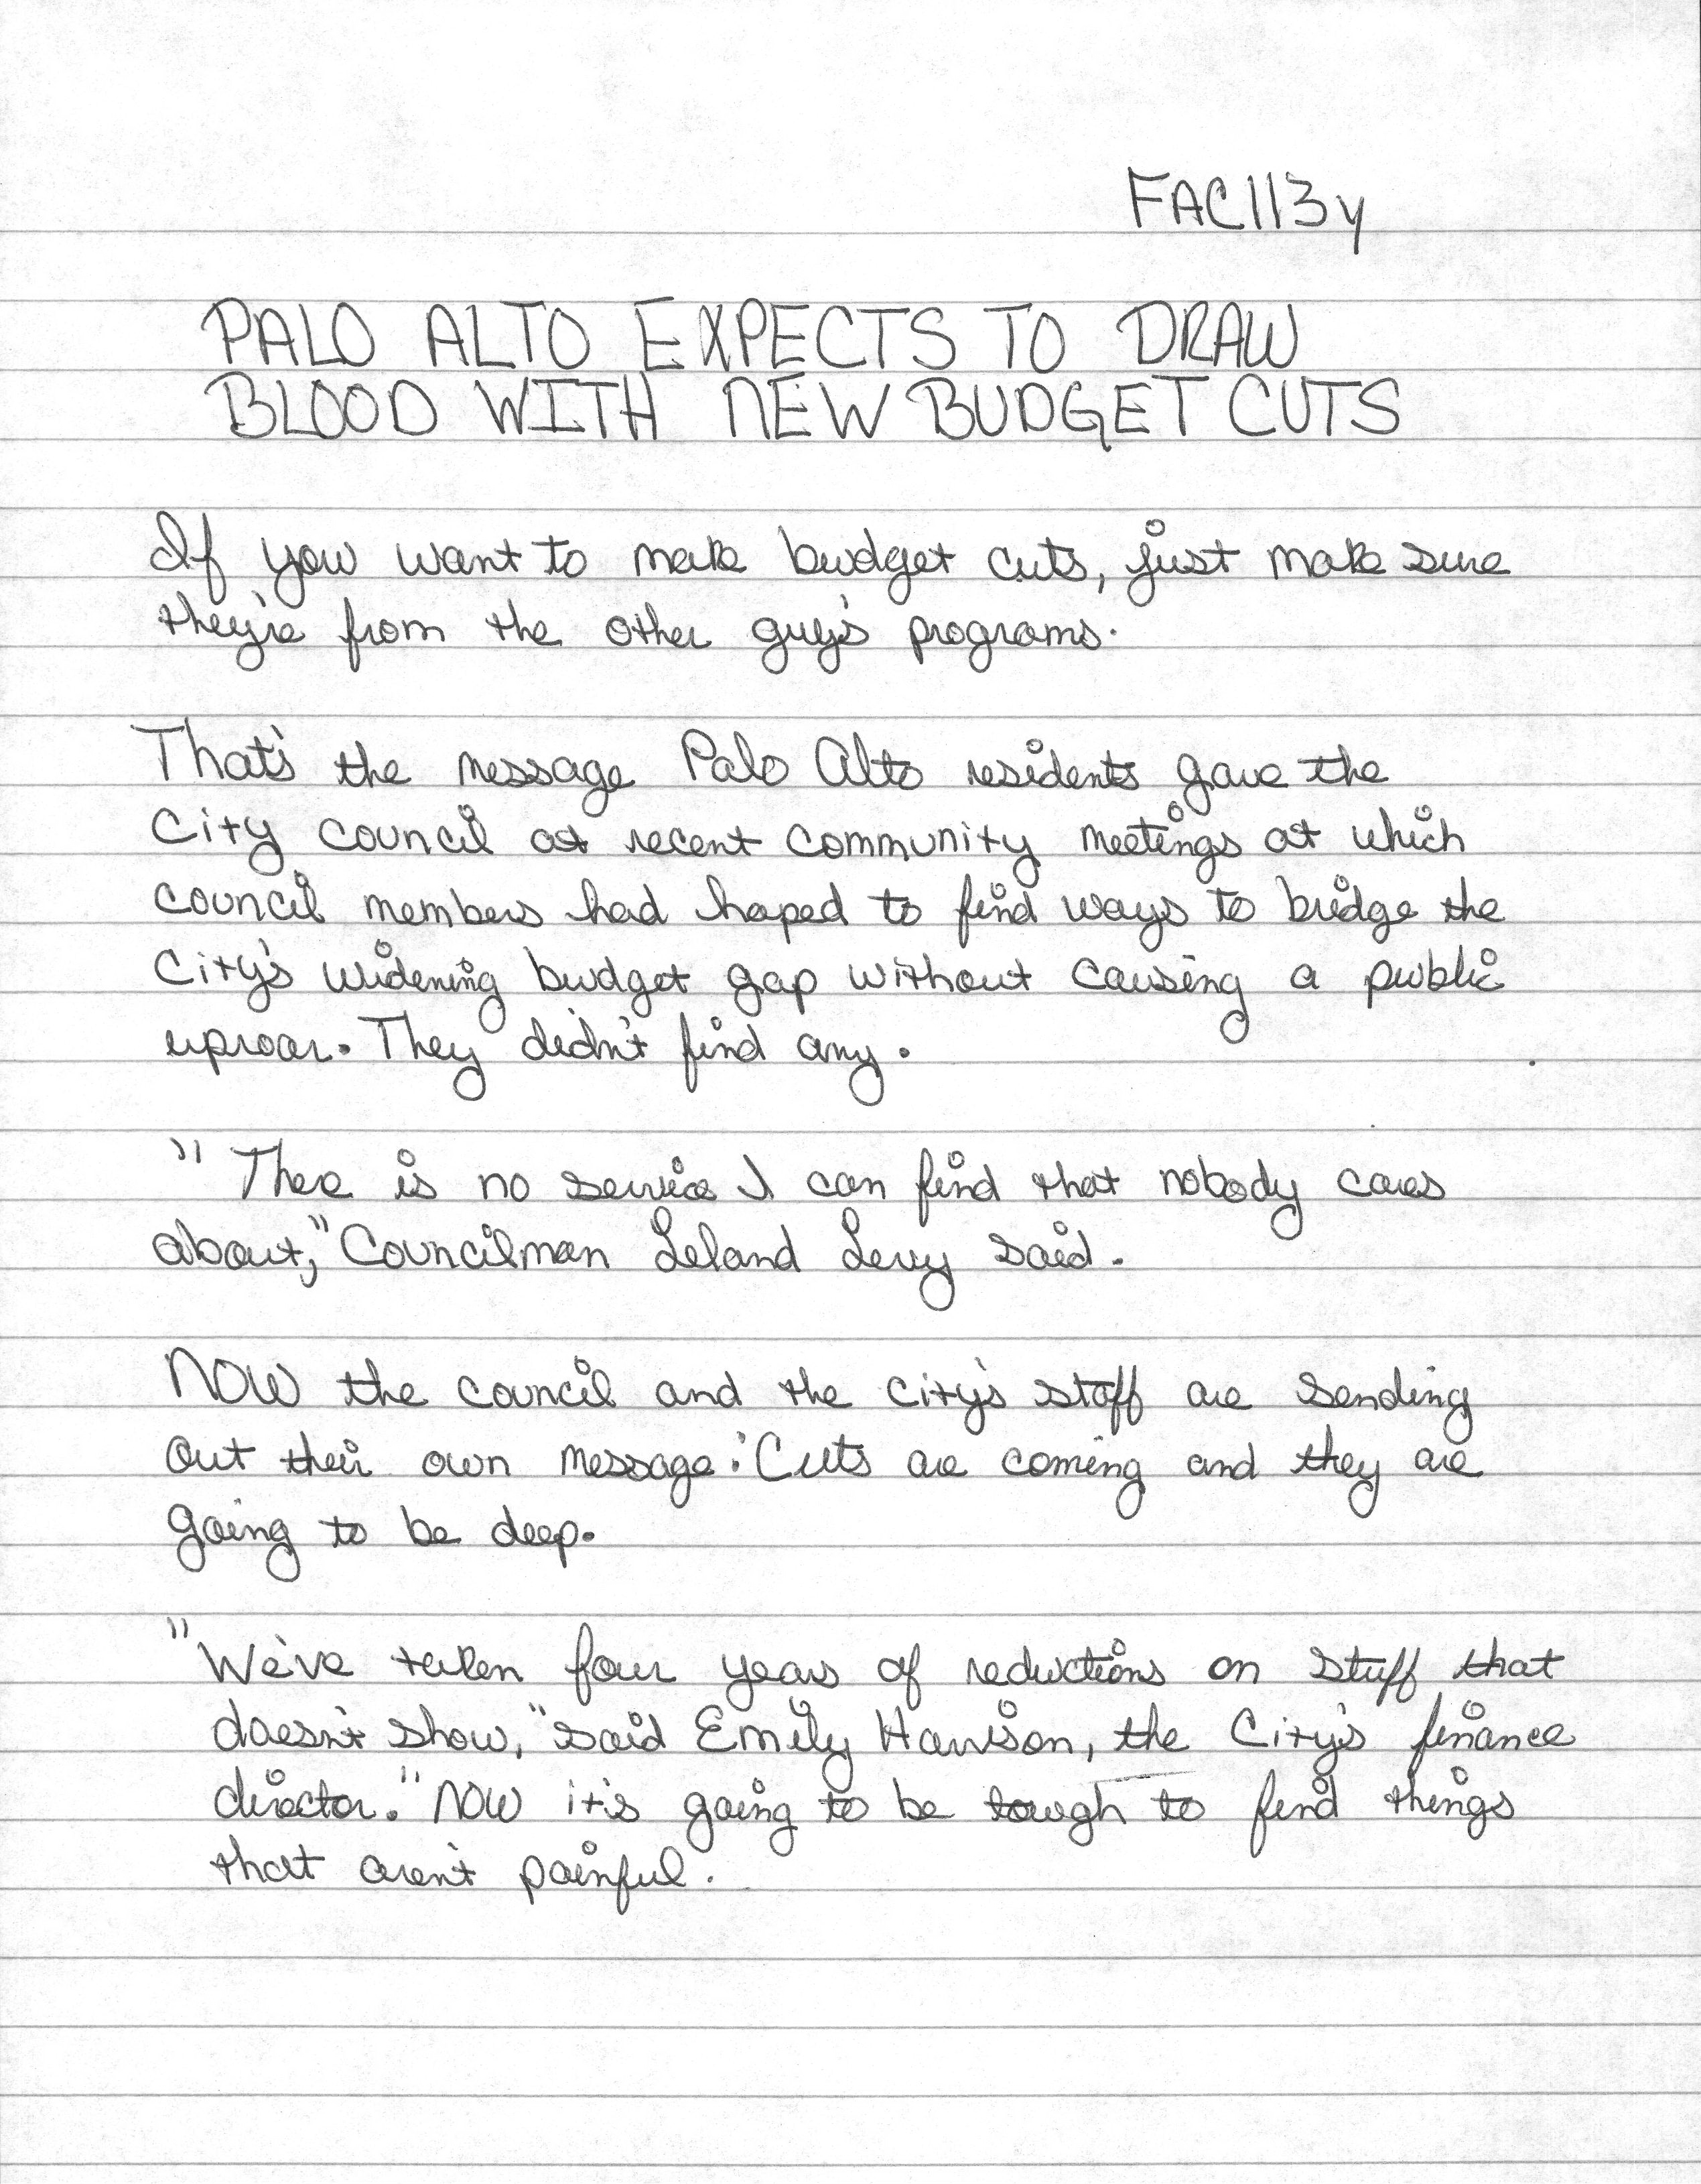 FAC113y
PALO ALTO EXPECTS TO DRAW
BLOOD WITH NEW BUDGET CUTS
If you want to make budget cuts, just make sure
they're from the other guy's programs.
That's the message Palo Alto residents gave the
City Council at recent community meetings at which
council members had hoped to find ways to bridge the
City's widening budget gap without causing a public
uproar. They didn't find any.
"There is no service I can find that nobody cares
about," Councilman Leland Levy said.
Now the council and the city's staff are sending
out their own message: Cuts are coming and they are
going to be deep.
"We've taken four years of reductions on stuff that
doesn't show," said Emily Harrison, the City's finance
director. "Now it's going to be tough to find things
that aren't painful.